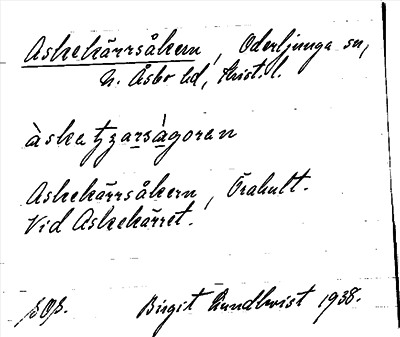 Askekärrsåkern, Oderljunga sn,
N. Åsbo hd, Krist. l.
àska tzarsàgoren
Askekärrsåkern, Örahult.
Vid Askekärret.
Birgit Rundkvist 1938.